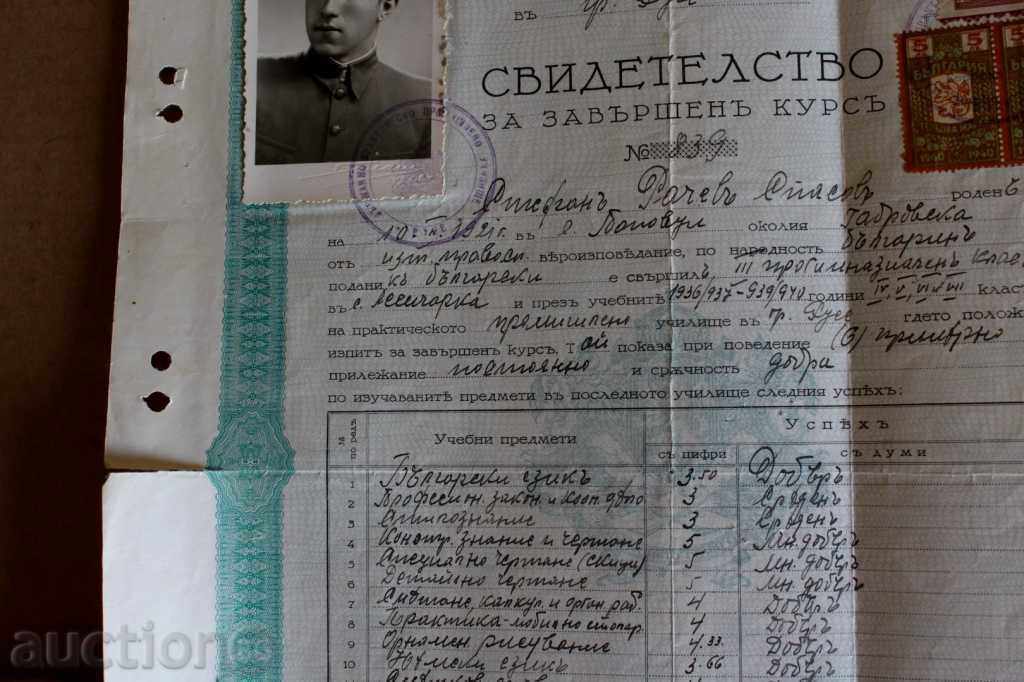 въ гр. Русе
СВИДЕТЕЛСТВО
ЗА ЗАВЪРШЕНЪ КУРСЪ
№ 839
5 БЪЛГАРИЯ 5
Стефанъ Рачевъ Спасовъ роденъ
на 1921 г. въ с. околия Габровска
от изт. правосл. вѣроизповѣдание, по народность българинъ
подани къ български е свършилъ III прогимназиаленъ клас
въ с. и презъ учебнитѣ 1936/937 – 939/940 години IV, V, VI и VII класт
на практическото промишлено училище въ гр. Русе где то полож
изпит за завършенъ курсъ. Той показа при поведение (6) примѣрно
прилежание постоянно и сръчность добра
по изучаванитѣ предмети въ последното училище следния успѣхъ:
№ по редъ Учебни предмети Успѣхъ
съ цифри съ думи
1 Български езикъ 3.50 Добъръ
2 Професион. закон. и кооп. дѣло 3 Среденъ
3 3 Среденъ
4 Констр. знание и чертане 5 Мн. добъръ
5 Специално чертане (скици) 5 Мн. добъръ
6 Детайлно чертане 5 Мн. добъръ
7 калкул. и орган. раб. 4 Добъръ
8 Практика - мебелно столар. 4 Добъръ
9 Орнамен. рисуване 4.33 Добъръ
10 Нѣмски езикъ 3.66 Добъръ
auction